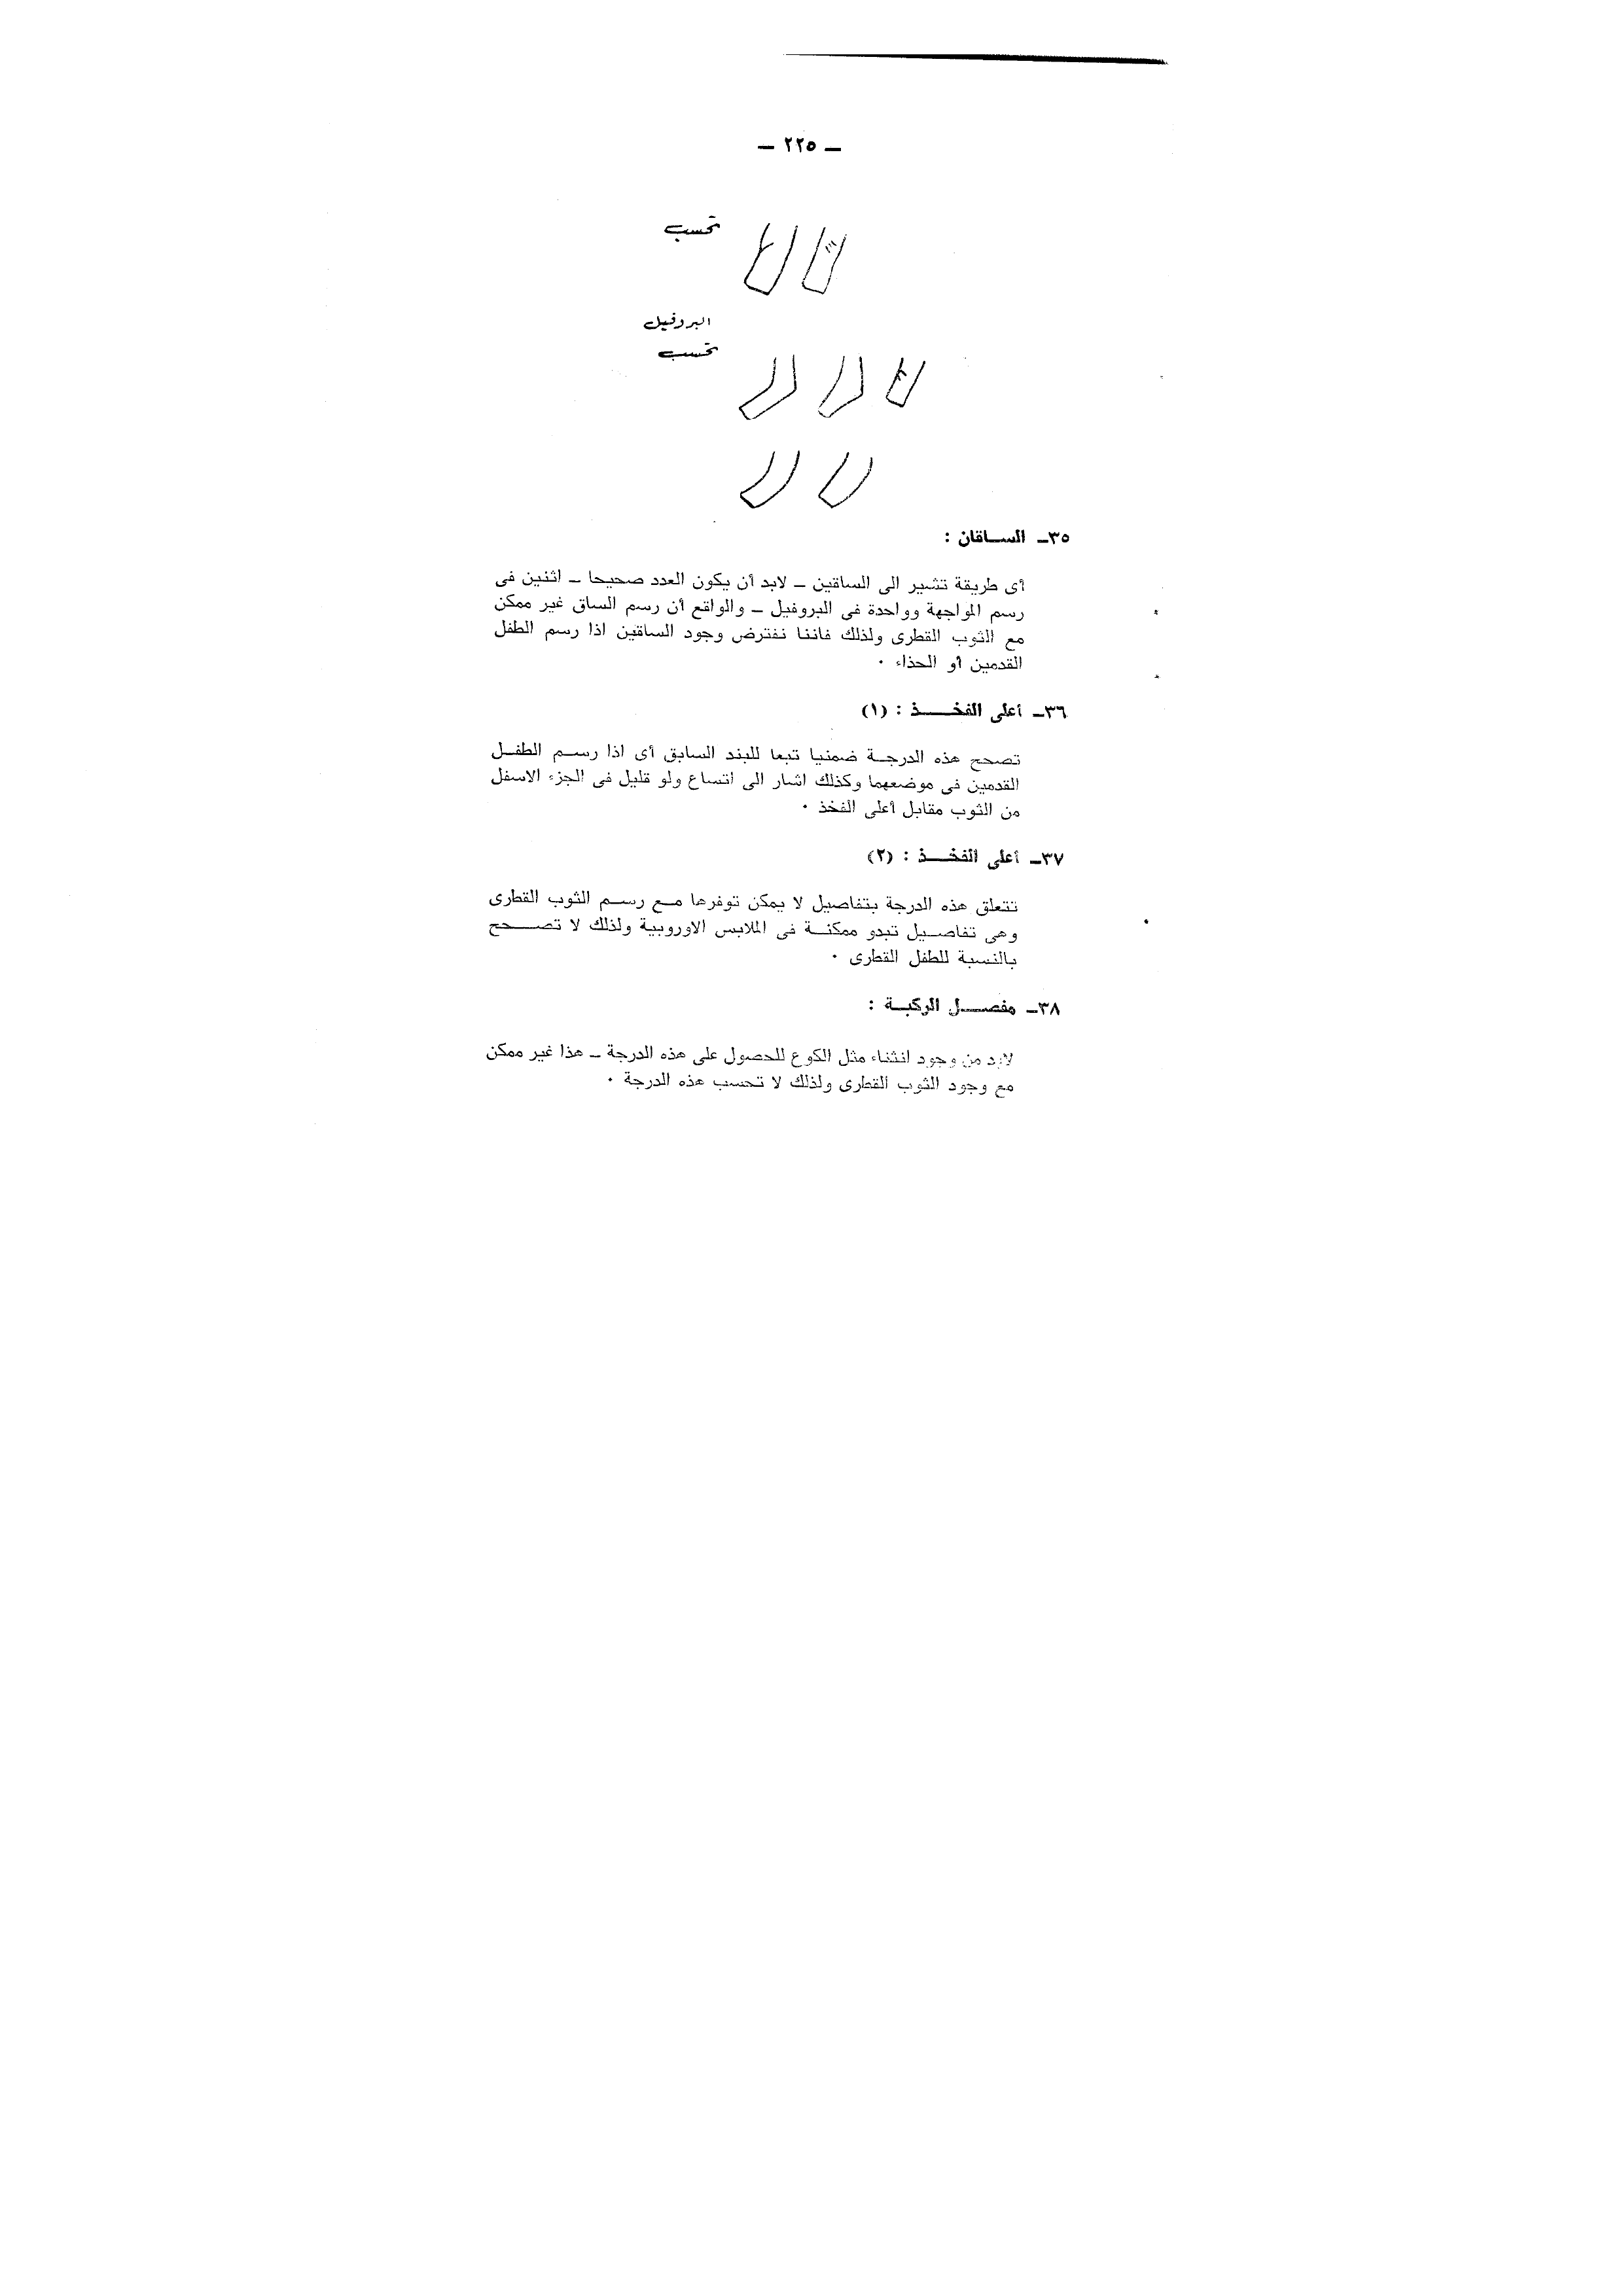 ـ ٢٢٥ ـ
تحسب
البروفيل
تحسب
٣٥ـ الساقان :
أى طريقة تشير الى الساقين ـ لابد أن يكون العدد صحيحا ـ اثنين فى
رسم المواجهة وواحدة فى البروفيل ـ والواقع أن رسم الساق غير ممكن
مع الثوب القطرى ولذلك فاننا نفترض وجود الساقين اذا رسم الطفل
القدمين أو الحذاء ٠
٣٦ـ أعلى الفخذ : (١)
تصحح هذه الدرجة ضمنيا تبعا للبند السابق أى اذا رسم الطفل
القدمين فى موضعهما وكذلك اشار الى اتساع ولو قليل فى الجزء الاسفل
من الثوب مقابل أعلى الفخذ ٠
٣٧ـ أعلى الفخذ : (٢)
تتعلق هذه الدرجة بتفاصيل لا يمكن توفرها مع رسم الثوب القطرى
وهى تفاصيل تبدو ممكنة فى الملابس الاوروبية ولذلك لا تصحح
بالنسبة للطفل القطرى ٠
٣٨ـ مفصل الركبة :
لابد من وجود انثناء مثل الكوع للحصول على هذه الدرجة ـ هذا غير ممكن
مع وجود الثوب القطرى ولذلك لا تحسب هذه الدرجة ٠